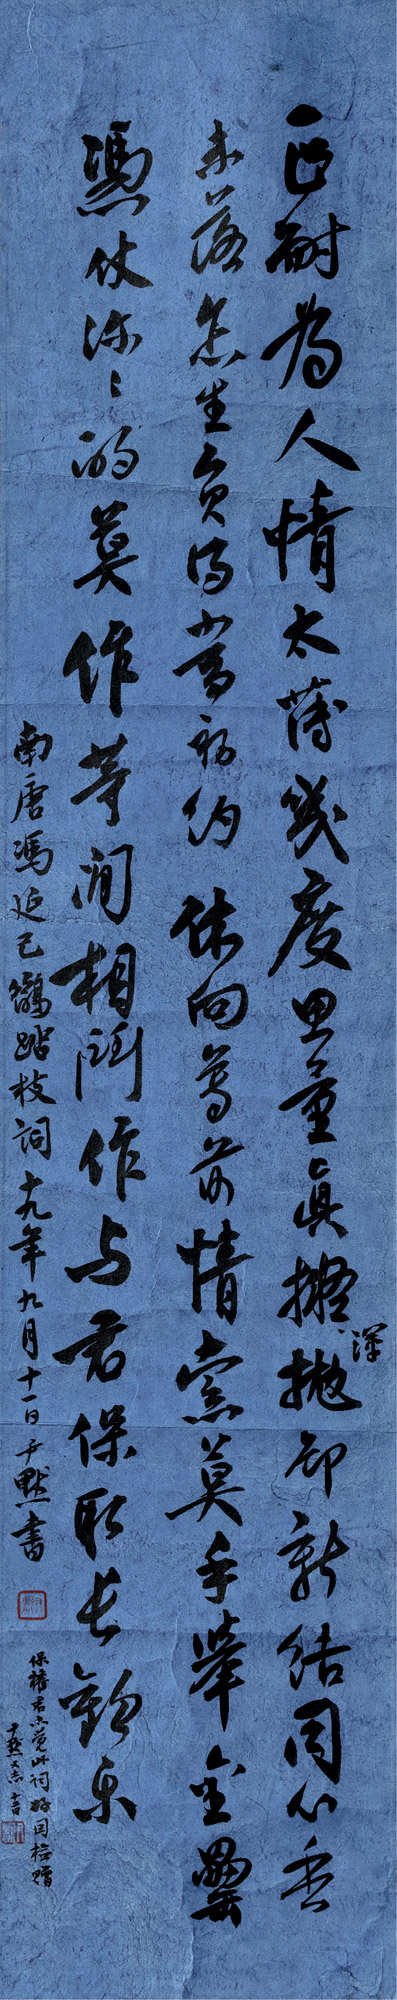 叵耐為人情太薄幾度思量真擬渾抛却新結同心香
未落怎生負得當初約休向尊前情索莫手舉金罍
憑仗深〻酌莫作等閒相鬥作與君保取長歡樂
南唐馮延巳鵲踏枝詞十九年九月十一日尹默書
保君亦覺此詞好因檢贈
尹默又志